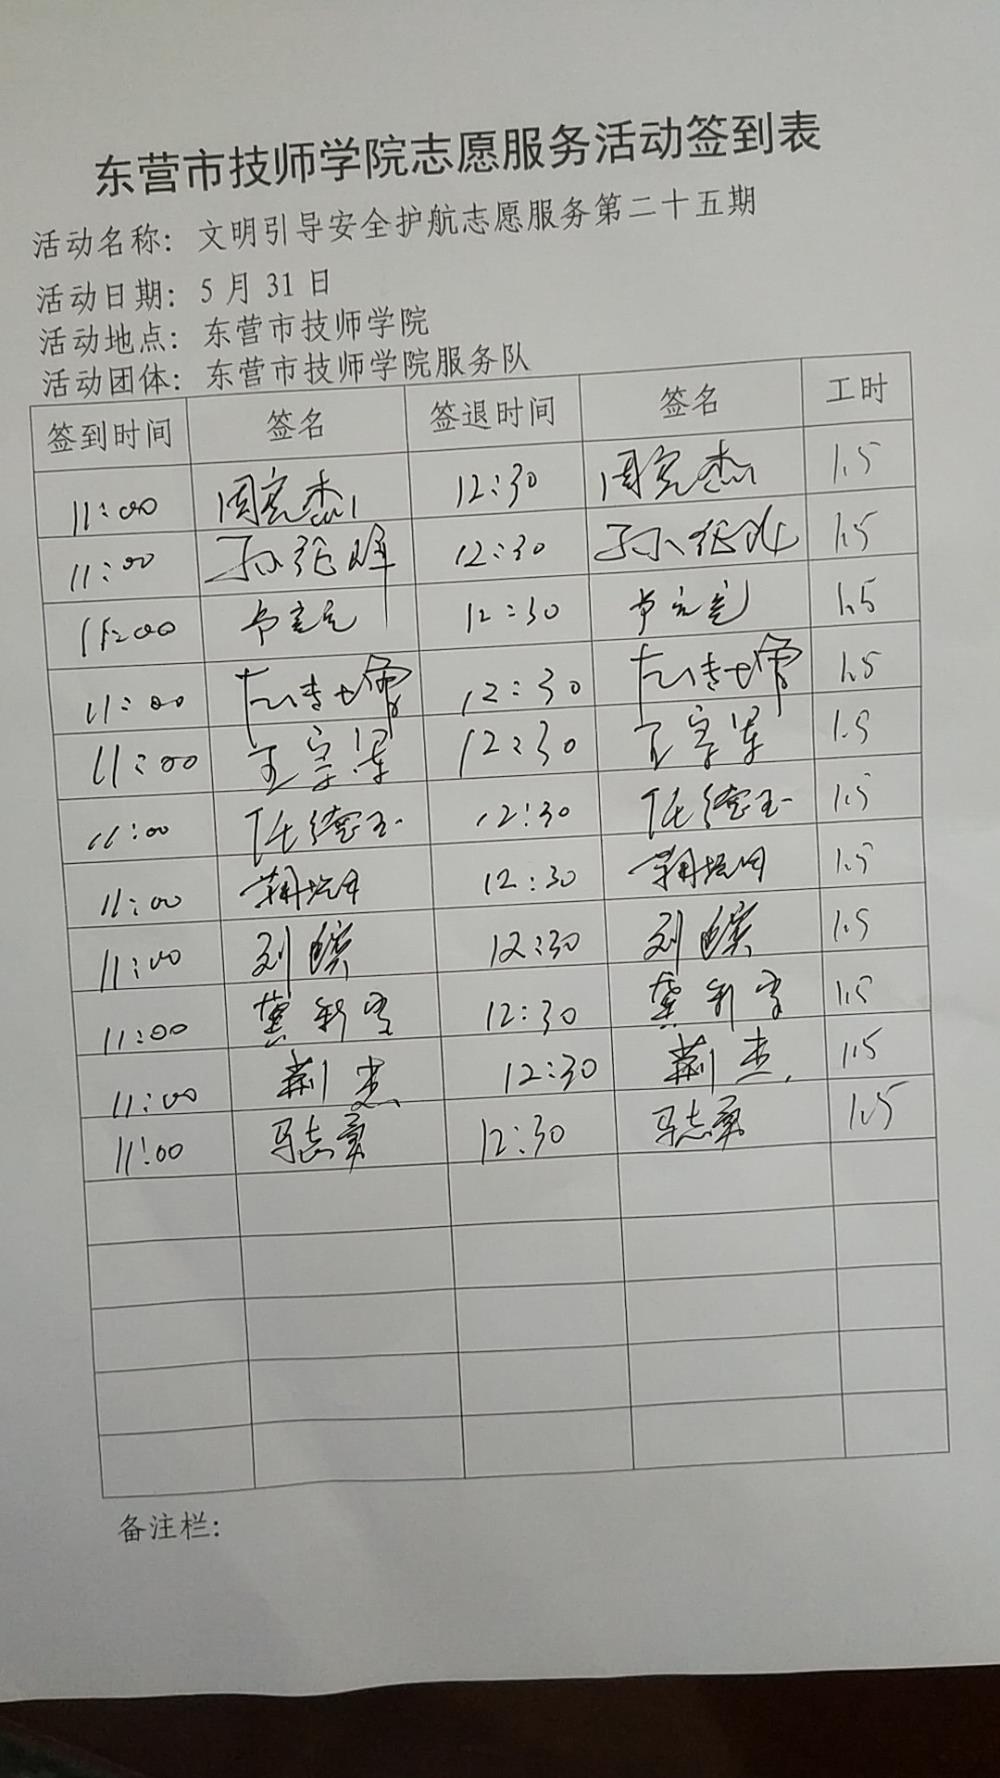 东营市技师学院志愿服务活动签到表
活动名称：文明引导安全护航志愿服务第二十五期
活动日期：5月31日
活动地点：东营市技师学院
活动团体：东营市技师学院服务队
签到时间 签名 签退时间 签名 工时
11:00 周宪杰 12:30 周宪杰 1.5
11:00 12:30 1.5
11:00 12:30 1.5
11:00 12:30 1.5
11:00 王字 12:30 王字 1.5
11:00 任德玉 12:30 任德玉 1.5
11:00 12:30 1.5
11:00 刘 12:30 刘 1.5
11:00 龚新宇 12:30 龚新宇 1.5
11:00 荆杰 12:30 荆杰 1.5
11:00 马志勇 12:30 马志勇 1.5
备注栏：